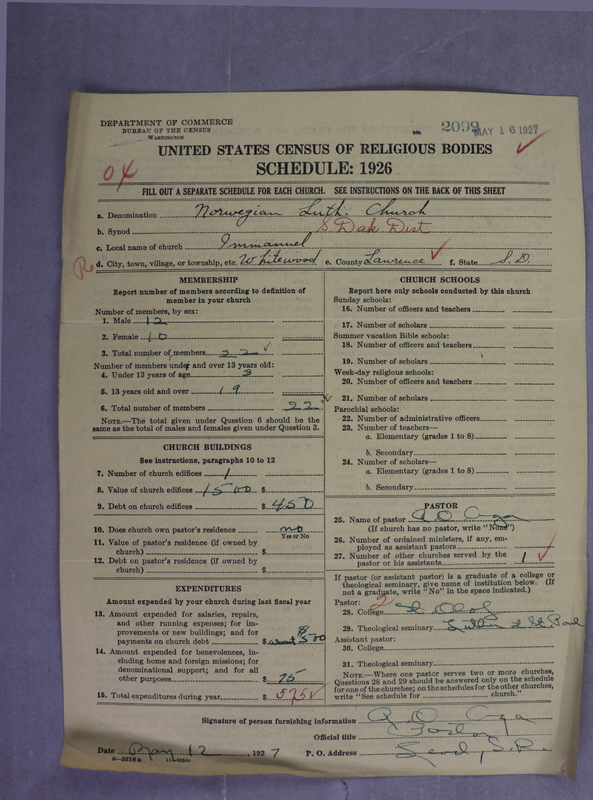 DEPARTMENT OF COMMERCE
BUREAU OF THE CENSUS
WASHINGTON
2099 MAY 16 1927
UNITED STATES CENSUS OF RELIGIOUS BODIES
SCHEDULE: 1926
04
FILL OUT A SEPARATE SCHEDULE FOR EACH CHURCH. SEE INSTRUCTIONS ON THE BACK OF THIS SHEET
a. Denomination Norwegian Luth. Church
b. Synod S. Dak. Dist
c. Local name of church Immanuel
R
d. City, town, village, or township, etc. Whitewood e. County Lawrence f. State S. D.
MEMBERSHIP
Report number of members according to definition of
member in your church
Number of members, by sex:
1. Male 12
2. Female 10
3. Total number of members 22
Number of members under and over 13 years old:
4. Under 13 years of age 3
5. 13 years old and over 19
6. Total number of members 22
NOTE.—The total given under Question 6 should be the
same as the total of males and females given under Question 3.
CHURCH BUILDINGS
See instructions, paragraphs 10 to 12
7. Number of church edifices 1
8. Value of church edifices 1500 $
9. Debt on church edifices $ 450
10. Does church own pastor's residence no
Yes or No
11. Value of pastor's residence (if owned by
church) $
12. Debt on pastor's residence (if owned by
church) $
EXPENDITURES
Amount expended by your church during last fiscal year
13. Amount expended for salaries, repairs,
and other running expenses; for im-
provements or new buildings; and for
payments on church debt $ about 500
14. Amount expended for benevolences, in-
cluding home and foreign missions; for
denominational support; and for all
other purposes $ 75
15. Total expenditures during year $ 575
CHURCH SCHOOLS
Report here only schools conducted by this church
Sunday schools:
16. Number of officers and teachers
17. Number of scholars
Summer vacation Bible schools:
18. Number of officers and teachers
19. Number of scholars
Week-day religious schools:
20. Number of officers and teachers
21. Number of scholars
Parochial schools:
22. Number of administrative officers
23. Number of teachers—
a. Elementary (grades 1 to 8)
b. Secondary
24. Number of scholars—
a. Elementary (grades 1 to 8)
b. Secondary
PASTOR
25. Name of pastor
(If church has no pastor, write "None")
26. Number of ordained ministers, if any, em-
ployed as assistant pastors
27. Number of other churches served by the
pastor or his assistants 1
If pastor (or assistant pastor) is a graduate of a college or
theological seminary, give name of institution below. (If
not a graduate, write "No" in the space indicated.)
Pastor: 2
28. College St Olaf
29. Theological seminary Luther St Paul
Assistant pastor:
30. College
31. Theological seminary
NOTE.—Where one pastor serves two or more churches,
Questions 28 and 29 should be answered only on the schedule
for one of the churches; on the schedules for the other churches,
write "See schedule for church."
Signature of person furnishing information
Official title Pastor
Date May 12, 1927 P. O. Address Lead, S. D.